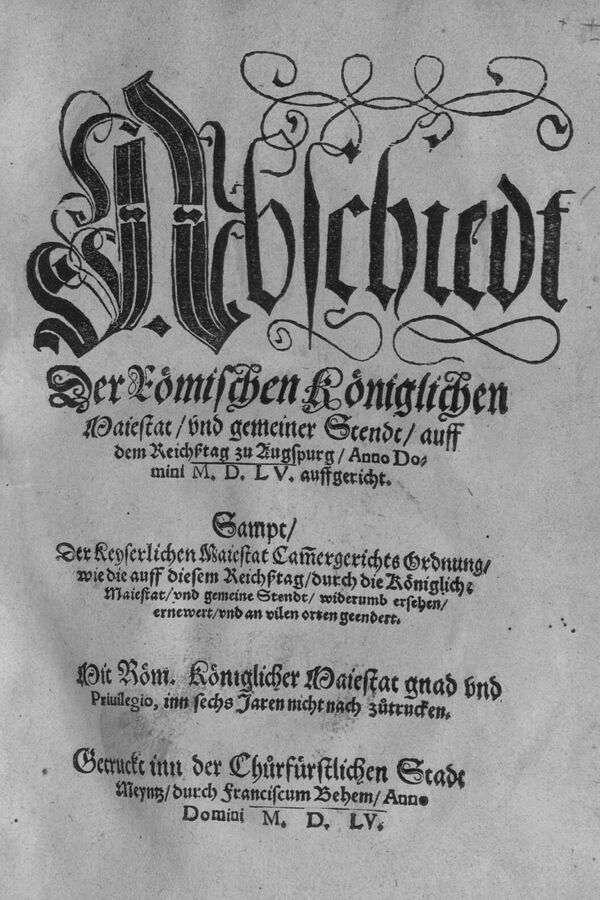 Abschiedt
Der Römischen Königlichen
Maiestat/vnd gemeiner Stendt/ auff
dem Reichßtag zu Augspurg/ Anno Do⸗
mini M. D. LV. auffgericht.
Sampt/
Der Keyserlichen Maiestat Cam̄ergerichts Ordnung/
wie die auff diesem Reichßtag/durch die Königlich⸗
Maiestat/vnd gemeine Stendt/ widerumb ersehen/
ernewert/vnd an vilen orten geendert.
Mit Röm. Königlicher Maiestat gnad vnd
Priuilegio, inn sechs Jaren nicht nach zůtrucken.
Getruckt inn der Chůrfürstlichen Stadt
Meyntz/durch Franciscum Behem/ Anno
Domini M. D. LV.